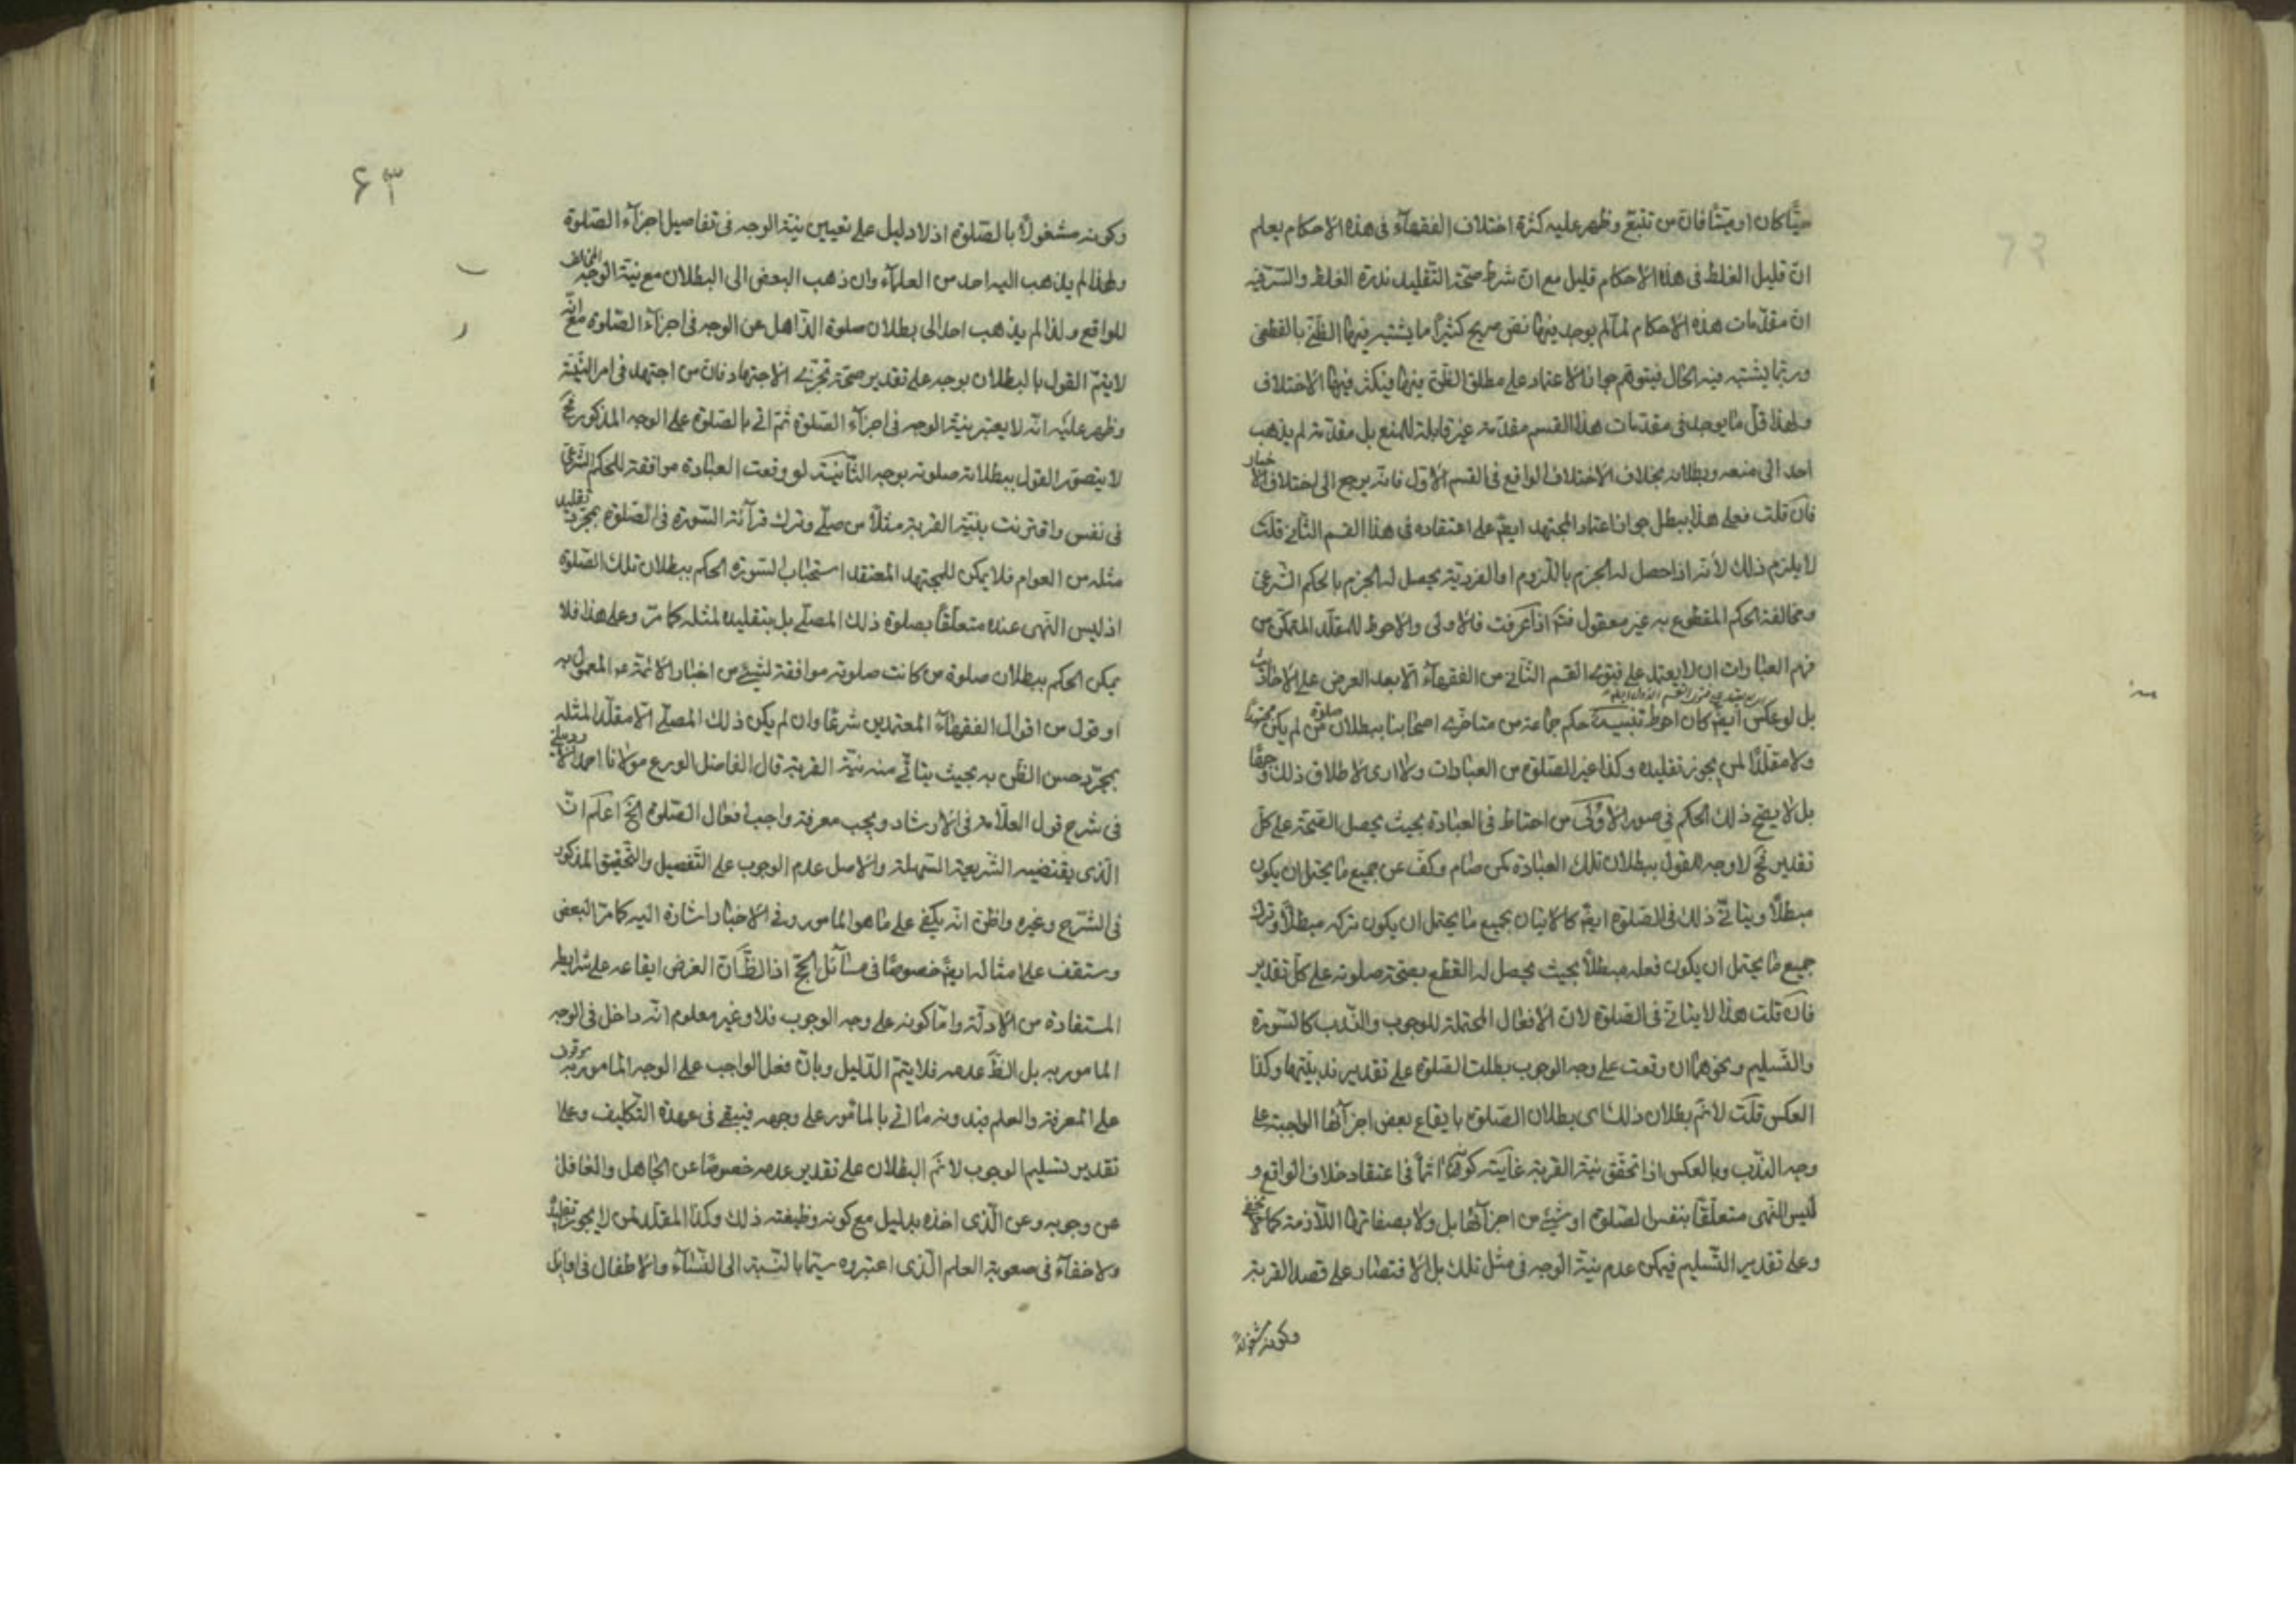 حيًّا كان او ميّتًا فانّ من تتبّع وظهر عليه كثرة اختلاف الفقهآء فى هذه الاحكام يعلم
انّ قليل الغلط فى هذه الاحكام قليل مع ان شرط صحّة التقليد ندرة الغلط والسّرّ فيه
ان مقدّمات هذه الاحكام لمّا لم يوجد فيها نصّ صريح كثيرًا ما يشتبه فيها الظنّى بالقطعى
وربّما يشتبه فيه الحال فيتوهّم جواز الاعتماد على مطلق الظنّ فيها فيكثر فيها الاختلاف
ولهذا قلّ ما يوجد فى مقدّمات هذا القسم مقدّمة غير قابلة للمنع بل مقدّمة لم يذهب
احد الى منعه وبطلانه بخلاف الاختلاف الواقع فى القسم الاوّل فانّه يرجع الى اختلاف الاخبار
فان قلت فعلى هذا يبطل جواز اعتماد المجتهد ايضًا على اعتقاده فى هذا القسم الثّانى قلت
لا يلزم ذلك لأنّه اذا حصل له الجزم باللّزوم او الفرديّة يحصل له الجزم بالحكم الشّرعى
ومخالفة الحكم المقطوع به غير معقول ثمّ اذا عرفت فالاولى والاحوط للمقلّد المتمكّن من
فهم العبارات ان لا يعتمد على فتوى القسم الثّانى من الفقهآء الّا بعد العرض على الاحاديث
بل لو عكس ايضًا كان احوط تنبيه حكم جماعة من متاخّرى اصحابنا ببطلان صلوة من لم يكن مجتهدًا
ولا مقلّدًا لمن يجوز تقليده وكذا غير الصّلوة من العبادات ولا ارى لاطلاق ذلك وجهًا
بل لا يصحّ ذلك الحكم فى صور الأولى من احتاط فى العبادة بحيث يحصل الصّحّة على كلّ
تقدير فح لا وجه للقول ببطلان تلك العبادة كمن صام وكفّ عن جميع ما يحتمل ان يكون
مبطلًا ويتأتّى ذلك فى الصّلوة ايضًا كالاتيان بجميع ما يحتمل ان يكون تركه مبطلًا وترك
جميع ما يحتمل ان يكون فعله مبطلًا بحيث يحصل له القطع بصحّة صلوته على كلّ تقدير
فان قلت هذا لا يتأتّى فى الصّلوة لان الافعال المحتملة للوجوب والنّدب كالسّورة
والتّسليم ونحوهما ان وقعت على وجه الوجوب بطلت الصّلوة على تقدير ندبيّتها وكذا
العكس قلت لا نمّ بطلان ذلك اى بطلان الصّلوة بايقاع بعض اجزآئها الواجبة على
وجه النّدب وبالعكس اذا تحقّق نيّة القربة غايته كونه آثمًا فى اعتقاد خلاف الواقع و
ليس النّهى متعلّقًا بنفس الصّلوة او شيئ من اجزآئها بل ولا بصفاتها اللّازمة كما لا يخفى
وعلى تقدير التّسليم فيمكن عدم نيّة الوجه فى مثل تلك بل الاقتصار على قصد القربة
وكونه مشغولًا
٦٣
وكونه مشغولًا بالصّلوة اذ لا دليل على تعيين نيّة الوجه فى تفاصيل اجزآء الصّلوة
ولهذا لم يذهب اليه احد من العلمآء وان ذهب البعض الى البطلان مع نيّة الوجه المخالف
للواقع ولذا لم يذهب احد الى بطلان صلوة الذّاهل عن الوجه فى اجزآء الصّلوة مع انّه
لا يتمّ القول بالبطلان بوجه على تقدير صحّة تجزّى الاجتهاد فانّ من اجتهد فى امر النّيّة
وظهر عليه انّه لا يعتبر نيّة الوجه فى اجزآء الصّلوة ثمّ اتى بالصّلوة على الوجه المذكور فح
لا يتصوّر القول ببطلان صلوته بوجه الثّانية لو وقعت العبادة موافقة للحكم الشّرعى
فى نفس واقترنت بنيّة القربة مثلًا من صلّى وترك قرآئة السّورة فى الصّلوة بمجرّد تقليد
مثله من العوام فلا يمكن للمجتهد المعتقد استحباب السّورة الحكم ببطلان تلك الصّلوة
اذ ليس النّهى عنده متعلّقًا بصلوة ذلك المصلّى بل بتقليده لمثله كما مرّ وعلى هذا فلا
يمكن الحكم ببطلان صلوة من كانت صلوته موافقة لشيئ من اخبار الائمّة ع المعمول به
او قول من اقوال الفقهآء المعتمدين شرعًا وان لم يكن ذلك المصلّى الّا مقلّدًا لمثله
بمجرّد حسن الظّن به بحيث يتأتّى منه نيّة القربة قال الفاضل الورع مولانا احمد الاردبيلى
فى شرح قول العلّامة فى الارشاد ويجب معرفة واجب افعال الصّلوة الخ اعلم انّ
الّذى يقتضيه الشّريعة السّهلة والاصل عدم الوجوب على التّفصيل والتّحقيق المذكور
فى الشّرح وغيره واظنّ انّه يكفى على ما هو المامور وفى الاخبار اشارة اليه كما مرّ البعض
وستقف على امثاله ايضًا خصوصًا فى مسآئل الحجّ اذ الظّ انّ الغرض ايقاعه على شرايط
المستفادة من الادلّة وامّا كونه على وجه الوجوب فلا وغير معلوم انّه داخل فى الوجه
المامور به بل الظّ عدمه فلا يتمّ الدّليل وبانّ فعل الواجب على الوجه المامور به موقوف
على المعرفة والعلم فبدونه ما اتى بالمأمور على وجهه فيبقى فى عهدة التّكليف وعلى
تقدير تسليم الوجوب لا نمّ البطلان على تقدير عدمه خصوصًا عن الجاهل والغافل
عن وجوبه وعن الّذى اخذه بدليل مع كونه وظيفته ذلك وكذا المقلّد لمن لا يجوز تقليده
ولا خفآء فى صعوبة العلم الّذى اعتبروه سيّما بالنّسبة الى النّسآء والاطفال فى اوايل